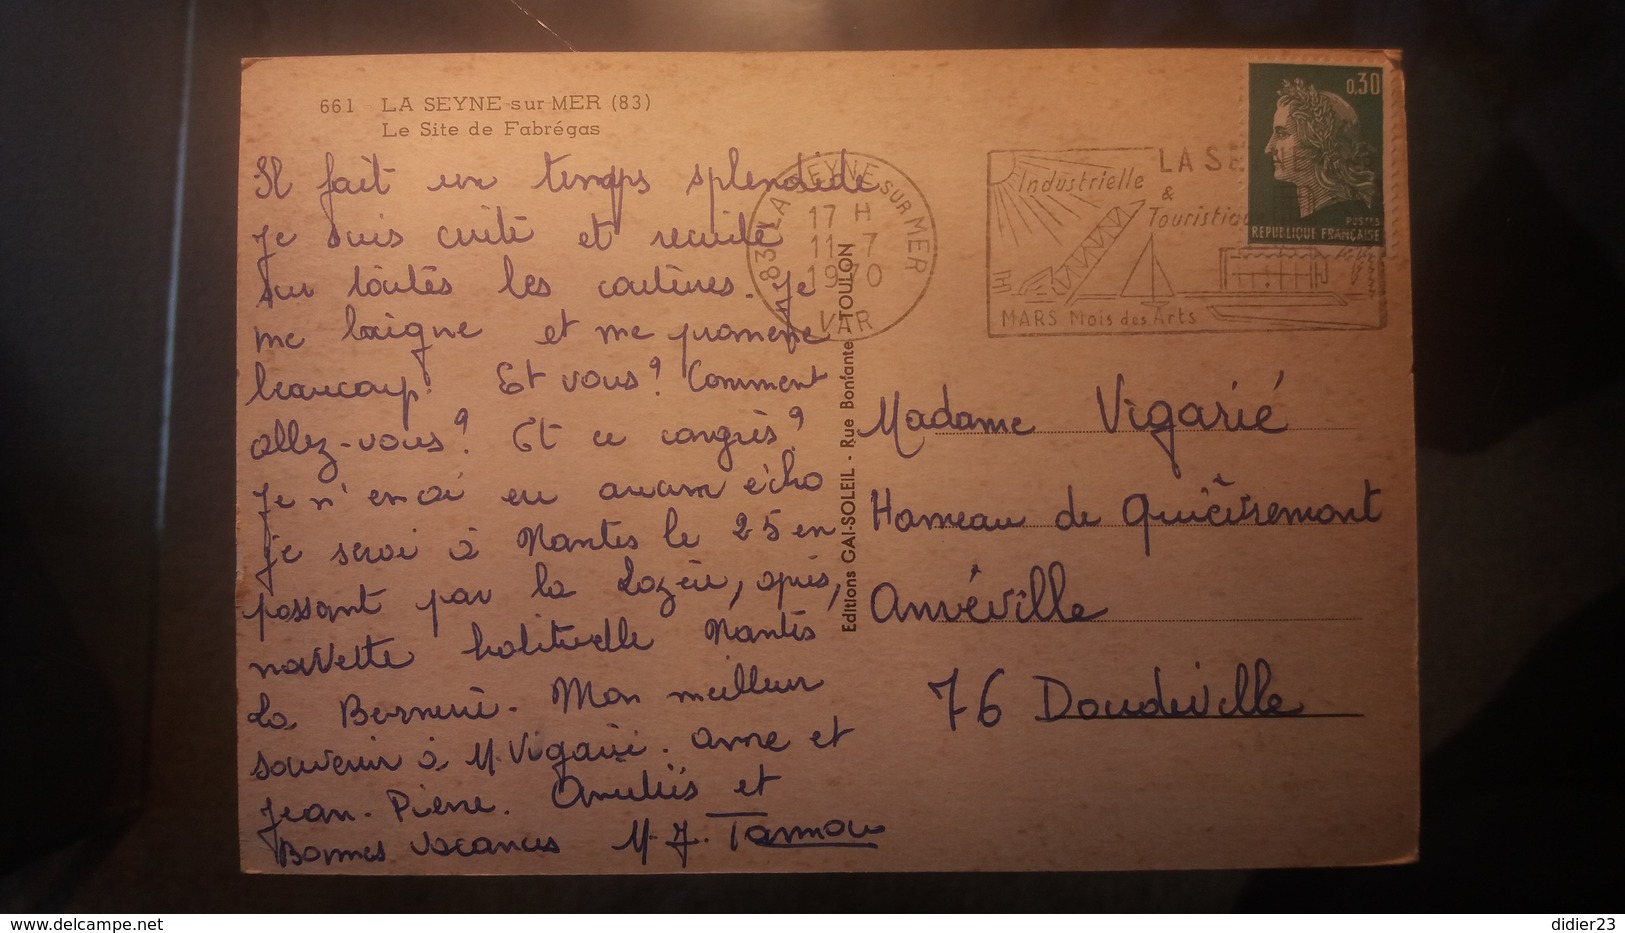 661 LA SEYNE-sur-MER (83)
Le Site de Fabrégas
Il fait un temps splendide
Je suis cuite et recuite
sur toutes les coutures. Je
me baigne et me promène
beaucoup. Et vous? Comment
allez-vous? Et ce congrès?
Je n'en ai eu aucun écho
Je serai à Nantes le 25 en
passant par la Lozère, après,
navette habituelle Nantes
La Bernerie. Mon meilleur
souvenir à M. Vigarié. Anne et
Jean-Pierre. Amitiés et
Bonnes vacances M. J.
83 LA SEYNE SUR MER
17 H
11-7
1970
VAR
LA SE
Industrielle
&
Touristiqu
MARS Mois des Arts
0,30
POSTES
REPUBLIQUE FRANÇAISE
Editions GAI-SOLEIL - Rue Bonfante - TOULON
Madame Vigarié
Hameau de
Amvéville
76 Doudeville
delcampe.net
didier23